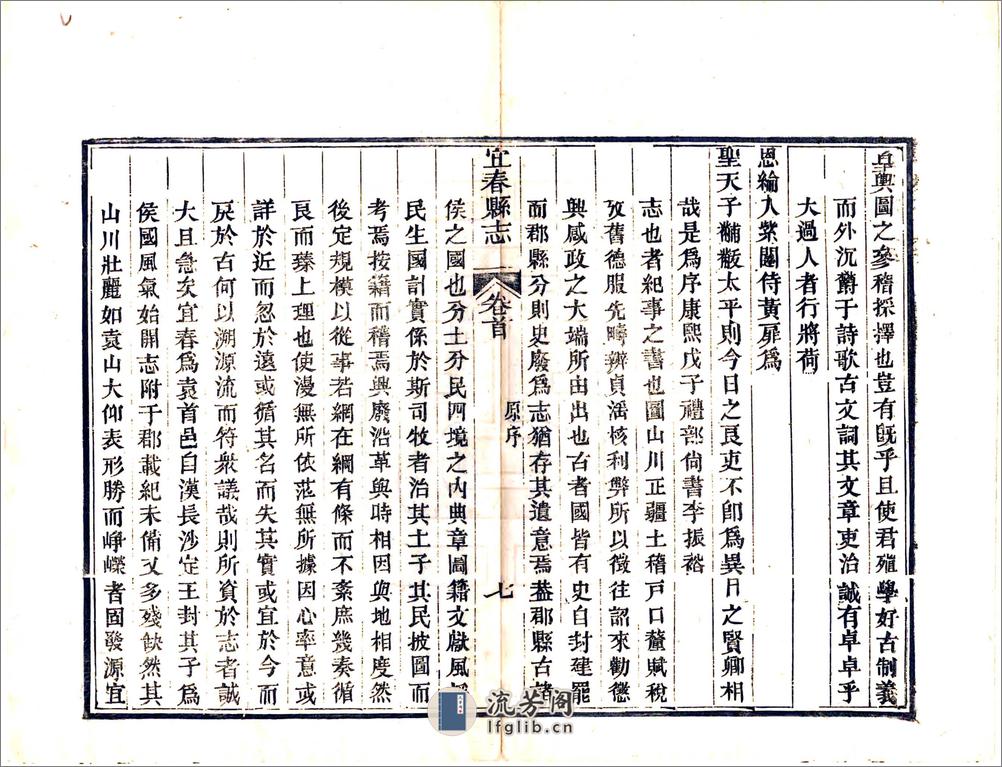 皇輿圖之參稽採擇也豈有旣乎且使君殫學好古制義
而外沉鬱于詩歌古文詞其文章吏治誠有卓卓乎
大過人者行將荷
恩綸入紫闥侍黃扉爲
聖天子黼黻太平則今日之良吏不卽爲異日之賢卿相
哉是爲序康熙戊子禮部尙書李振裕
志也者紀事之書也圖山川正疆土稽戶口釐賦稅
攷舊德服先疇辨貞淫核利弊所以徵往詔來勸懲
興咸政之大端所由出也古者國皆有史自封建罷
而郡縣分則史廢爲志猶存其遺意焉蓋郡縣古諸
宜春縣志
卷首
原序
七
侯之國也分土分民四境之內典章圖籍文獻風
民生國計實係於斯司牧者治其土子其民披圖而
考焉按籍而稽焉興廢沿革與時相因與地相度然
後定規模以從事若網在綱有條而不紊庶幾奏循
良而臻上理也使漫無所依范無所據因心率意或
詳於近而忽於遠或循其名而失其實或宜於今而
戾於古何以溯源流而符衆議哉則所資於志者誠
大且急矣宜春爲袁首邑自漢長沙定王封其子爲
侯國風氣始開志附于郡載紀未備又多殘缺然其
山川壯麗如袁山大仰表形勝而崢嶸者固發源宜
流芳阁
lfglib.cn